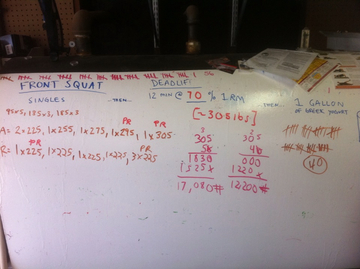 FRONT SQUAT
DEADLIFT
SINGLES
...THEN...
12 MIN @ 70 % 1 RM
...THEN...
1 GALLON
OF GREEK YOGURT
95x5, 135x3, 185x3
[~308 lbs]
PR PR
A= 2x225, 1x255, 1x275, 1x295, 1x305
PR PR
R= 1x225, 1x225, 1x225, 1x225, 3x225
305
56
1830
1525x
17,080#
305
40
000
1220x
12200#
40